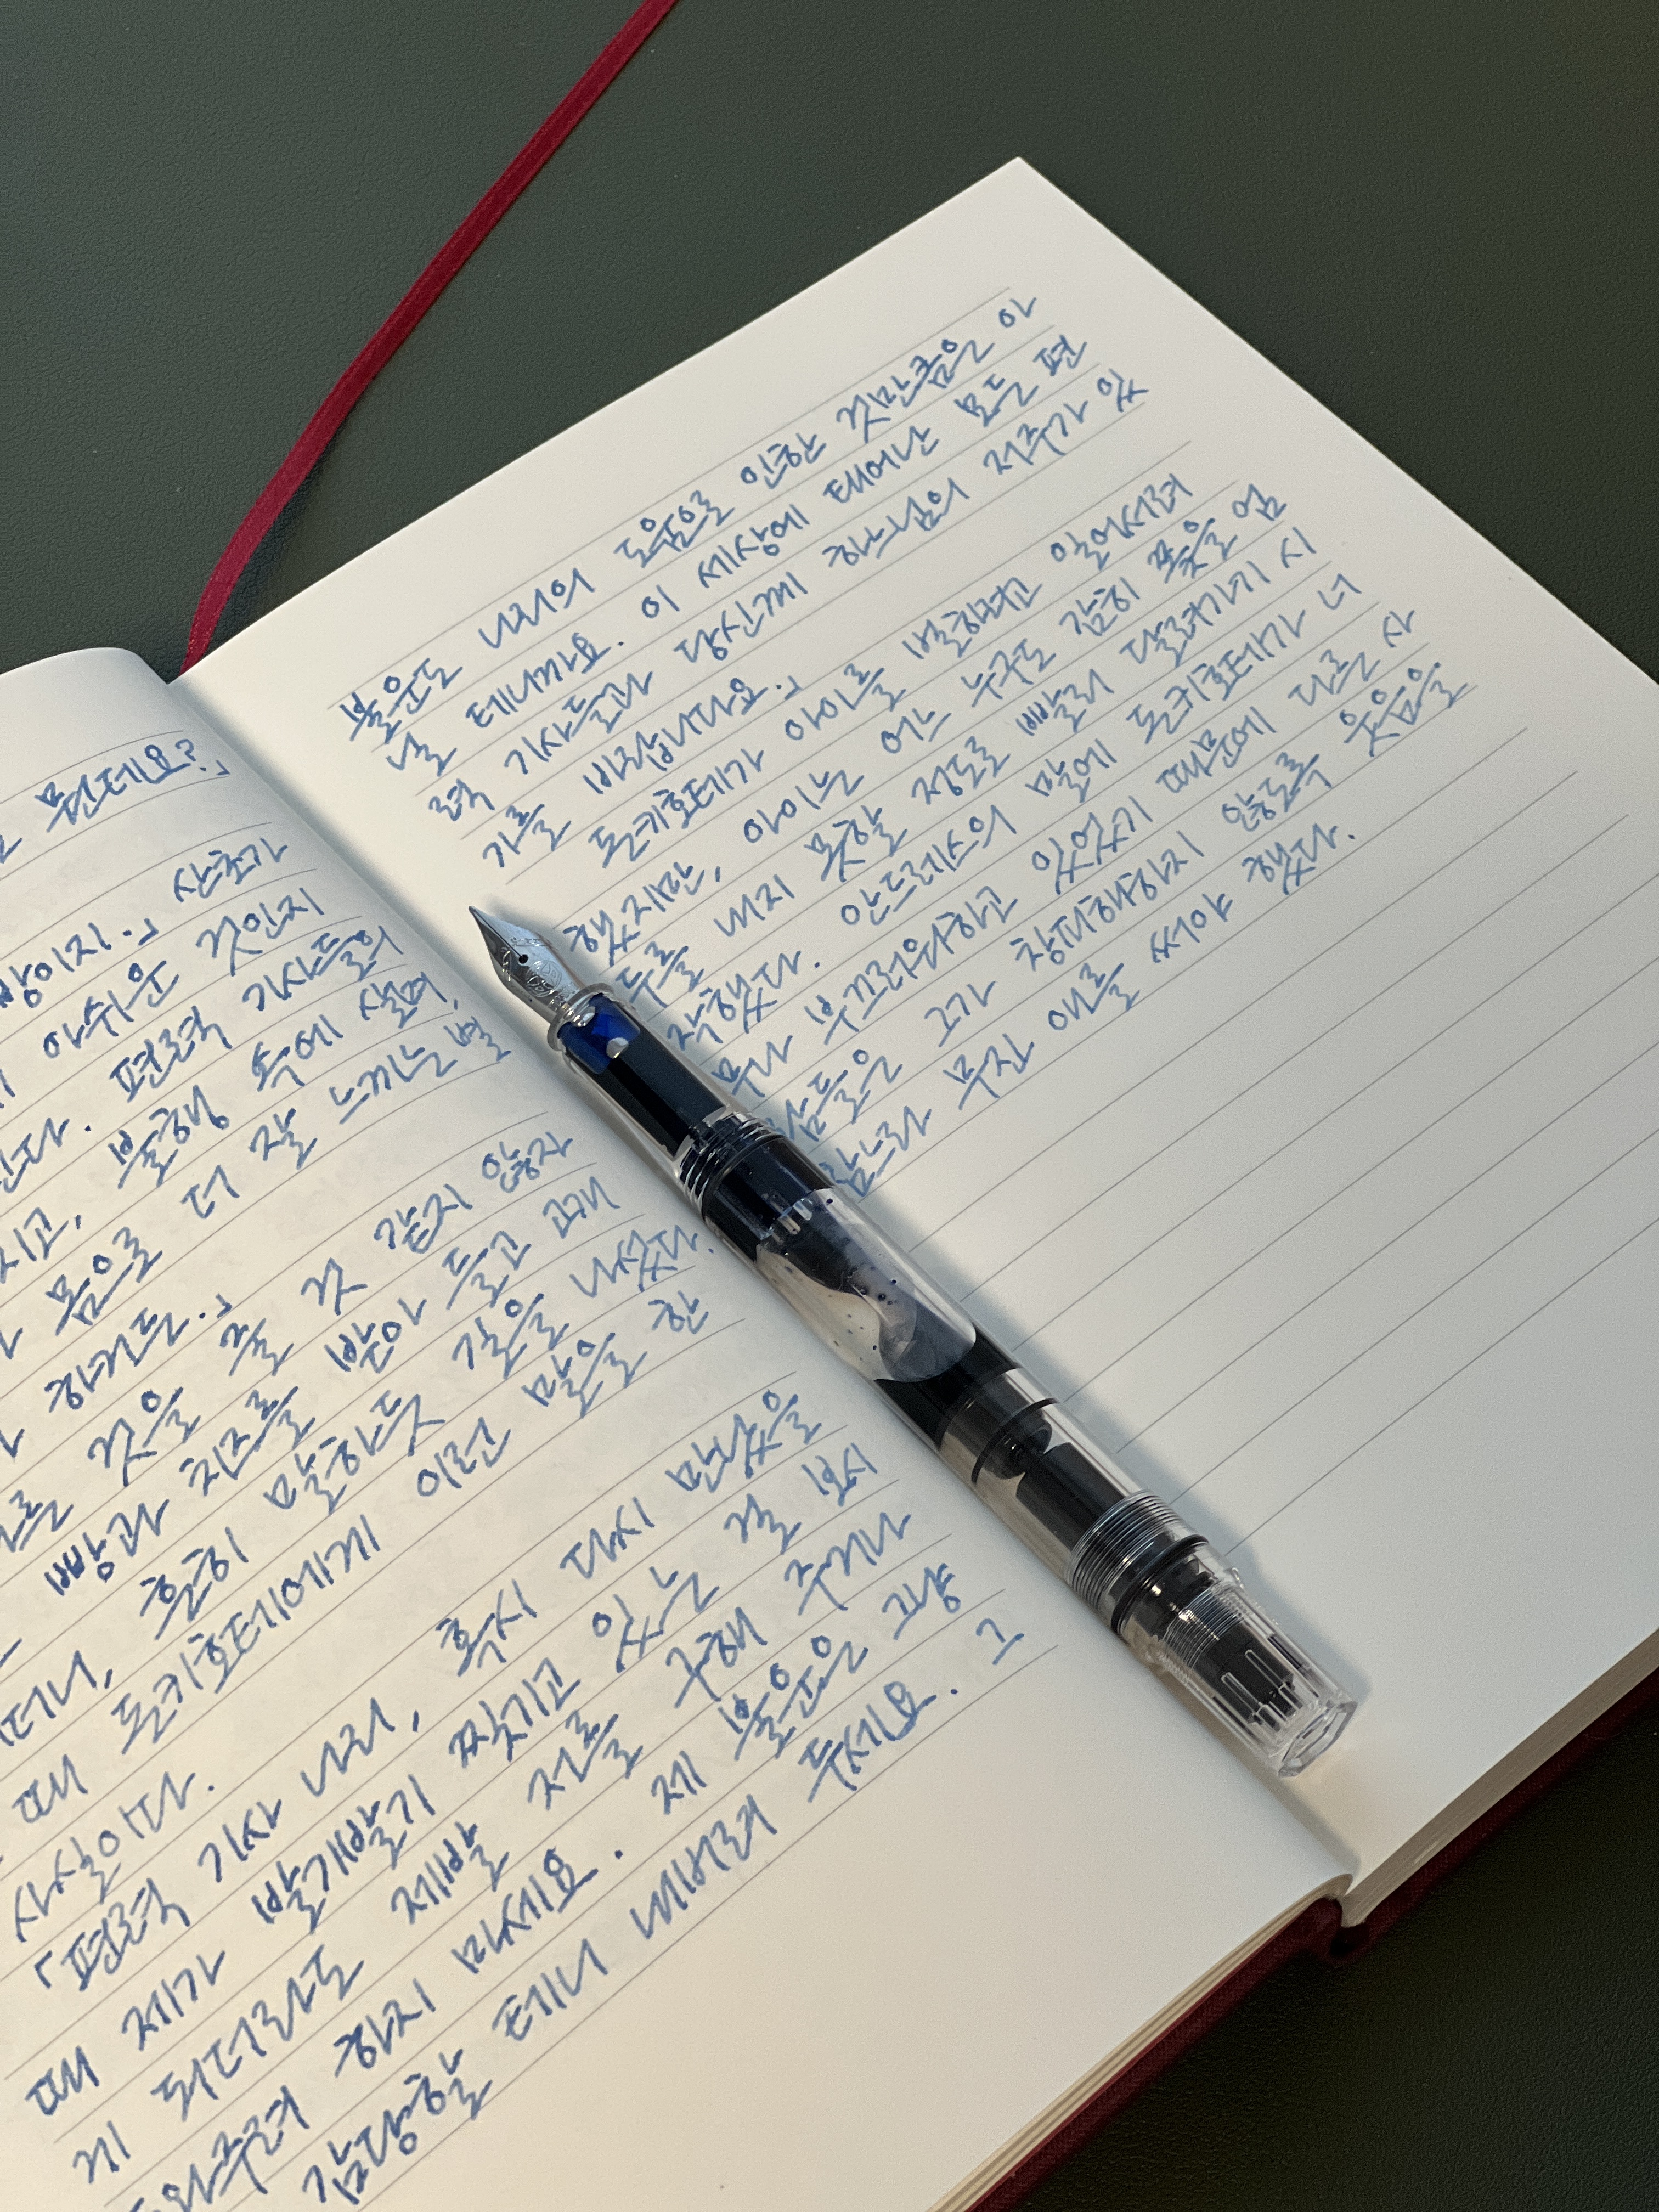 뭔데요?」
방이지.」 산초가
아쉬운 것인지
편력 기사들의
지고, 불행 속에 살며,
몸으로 더 잘 느끼는 법
하거든.」
것을 줄 것 같지 않자
빵과 치즈를 받아 들고 고개
흔히 말하듯 길을 나섰다.
때 돈키호테에게 이런 말을 한
사실이다.
「편력 기사 나리, 혹시 다시 만났을
때 제가 찢기고 있는 걸 보시
게 되더라도 제발 저를 구해 주거나
도와주려 하지 마세요. 제 불운은 그냥
감당할 테니 내버려 두세요. 그
불운도 나리의 도움으로 인한 것만큼은 아
닐 테니까요. 이 세상에 태어난 모든 편
력 기사들과 당신께 하느님의 저주가 있
기를 바랍니다요.」
돈키호테가 아이를 벌하려고 일어서려
했지만, 아이는 어느 누구도 감히 쫓을 엄
두를 내지 못할 정도로 빨리 달려가기 시
작했다. 안드레스의 말에 돈키호테가 너
무나 부끄러워하고 있었기 때문에 다른 사
람들은 그가 창피해하지 않도록 웃음을
참느라 무진 애를 써야 했다.